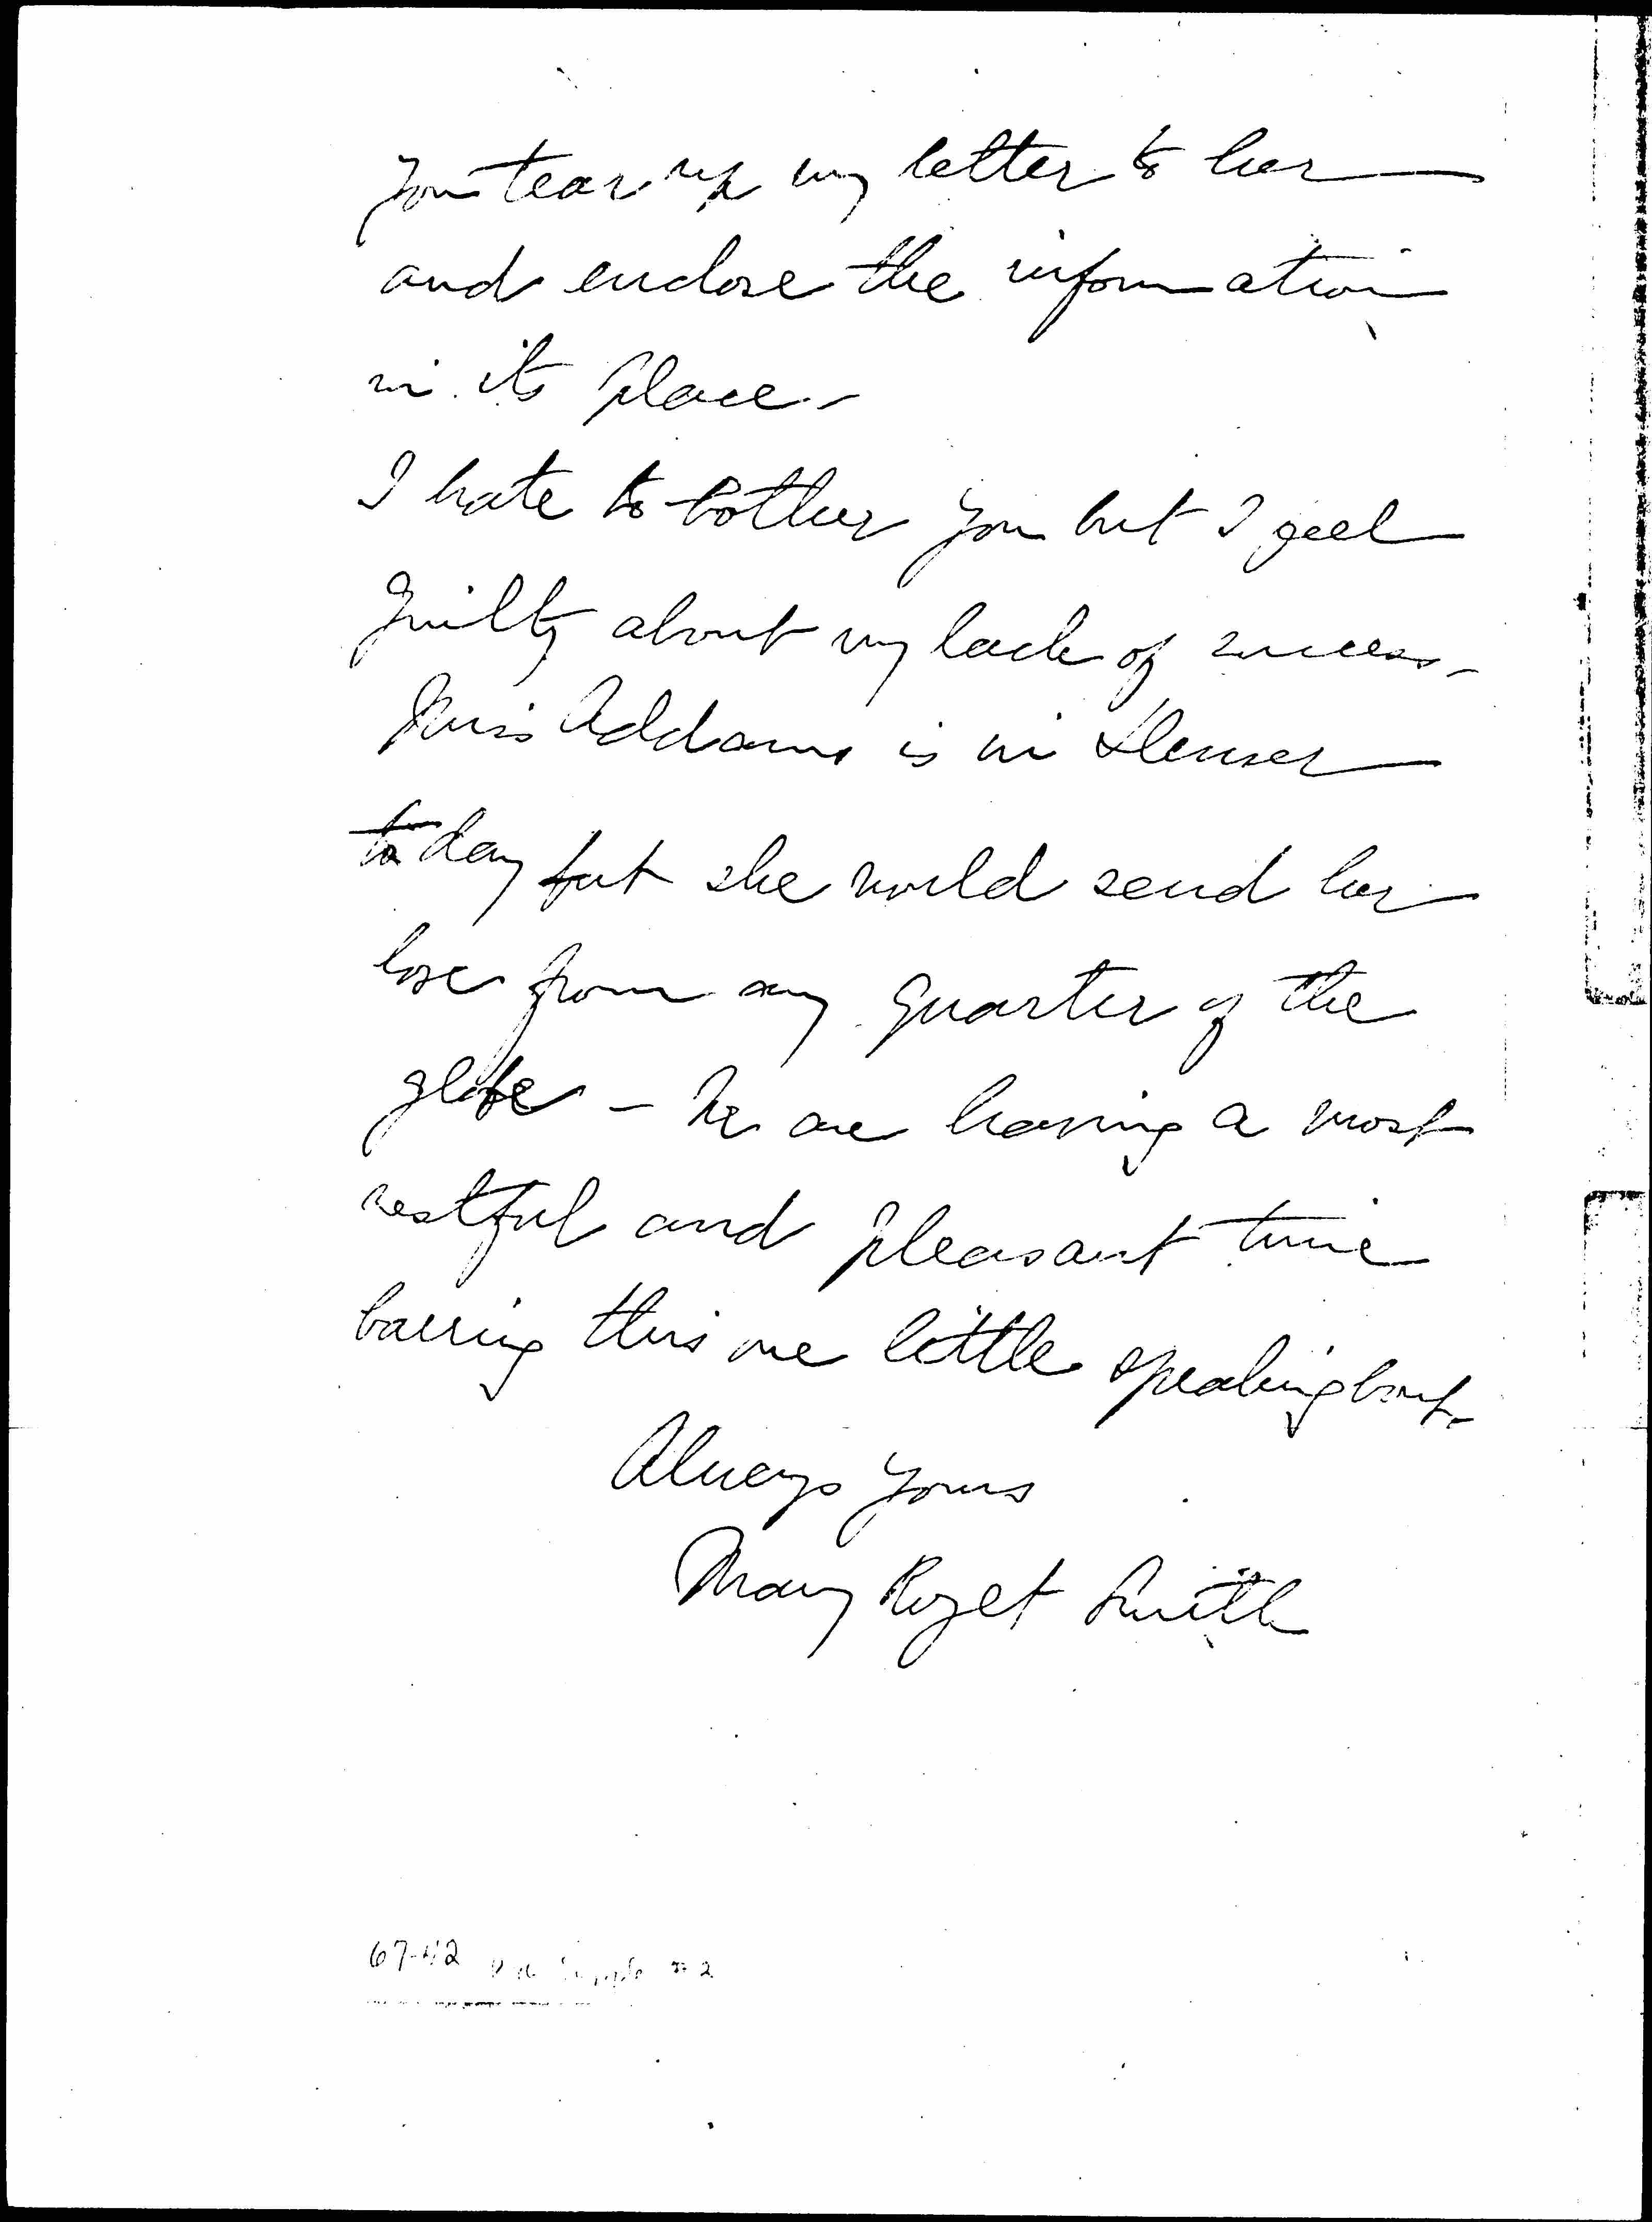 you tear up my letter to her
and enclose the information
in its place –
I hate to bother you but I feel
guilty about my lack of success –
Miss Addams is in Denver
to day but she would send her
love from any quarter of the
globe – We are having a most
restful and pleasant time
barring this one little speaking bout –
Always yours
Mary Rozet Smith
67-42 #2